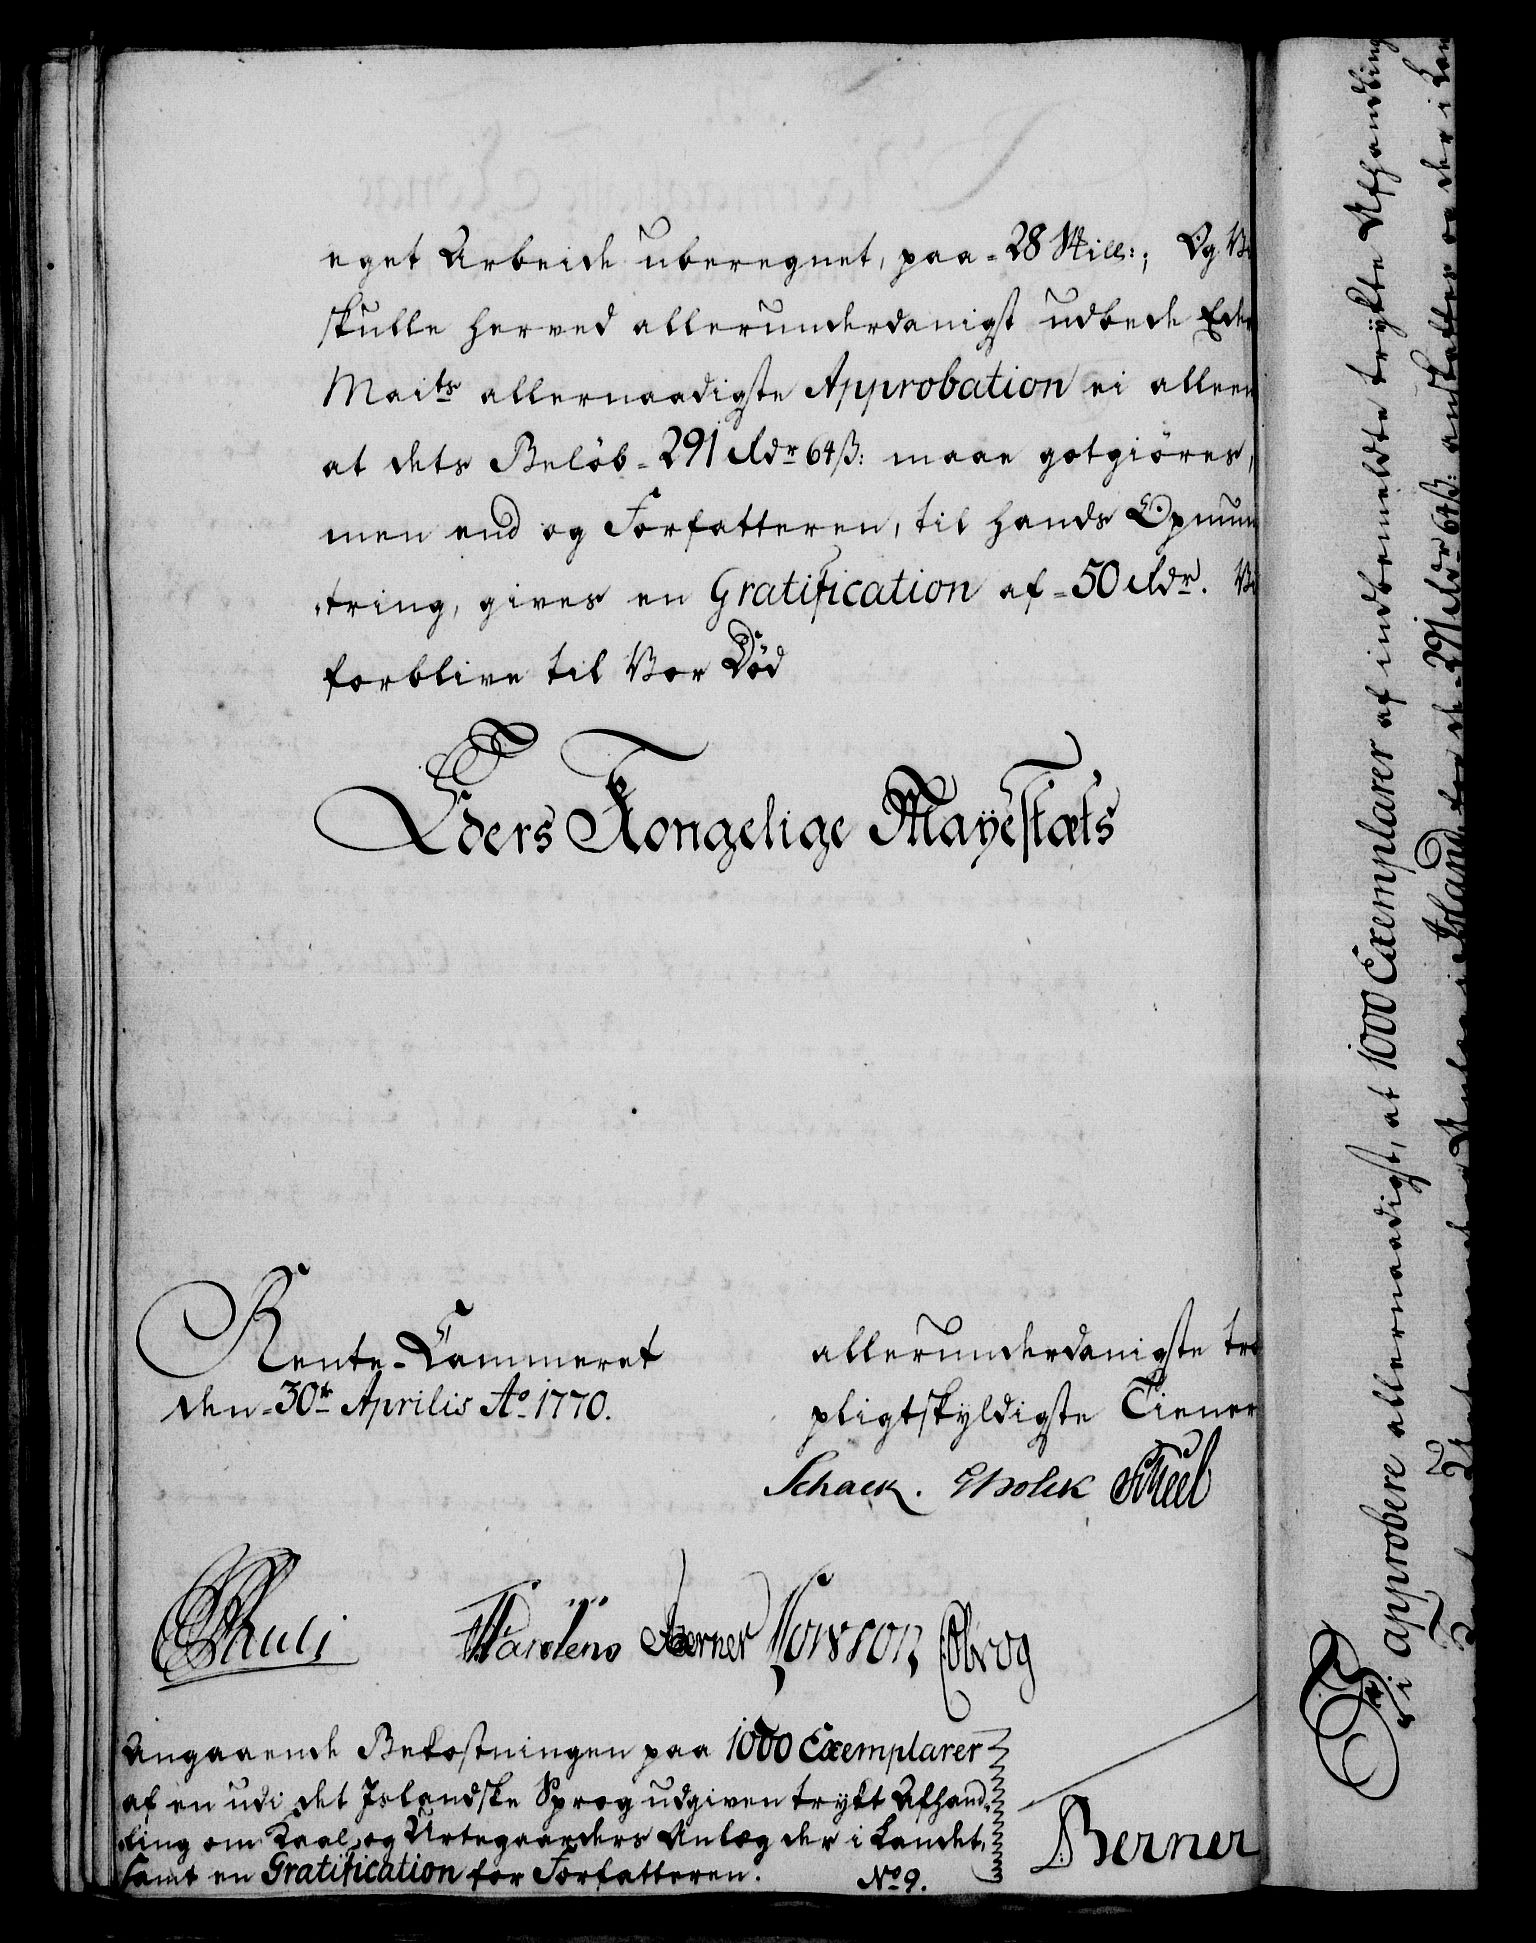 eget Arbeide uberegnet, paa = 28 Skill:; Og Vi
skulle herved allerunderdanigst udbede Eders
Maits allernaadigste Approbation ei alleene
at dets Beløb = 291 Rdr 64 ß: maae gotgiøres,
men end og Forfatteren, til hands Opmun
tring, gives en Gratification af = 50 Rdr. Vi
forblive til Vor Död
Eders Kongelige Mayestæts
Rente-Cammeret
den = 30te Aprilis Ao 1770.
allerunderdanigste tro
pligtskyldigste Tienere
Schack. GHolck Scheel
Berner Cobrog
Angaaende Bekostningen paa 1000 Exemplarer
af en udi det Islandske Sprog udgiven trykt Afhand-
ling om Kaal og Urtegaarders Anlæg der i Landet,
samt en Gratification for Forfatteren.
No 9.
Berner
Vi approbere allernaadigst, at 1000 Exemplarer af indbemeldte trykte Afhandling
Anlæg i Island for de = 291 Rdr 64 ß: anskaffes og der i Lan